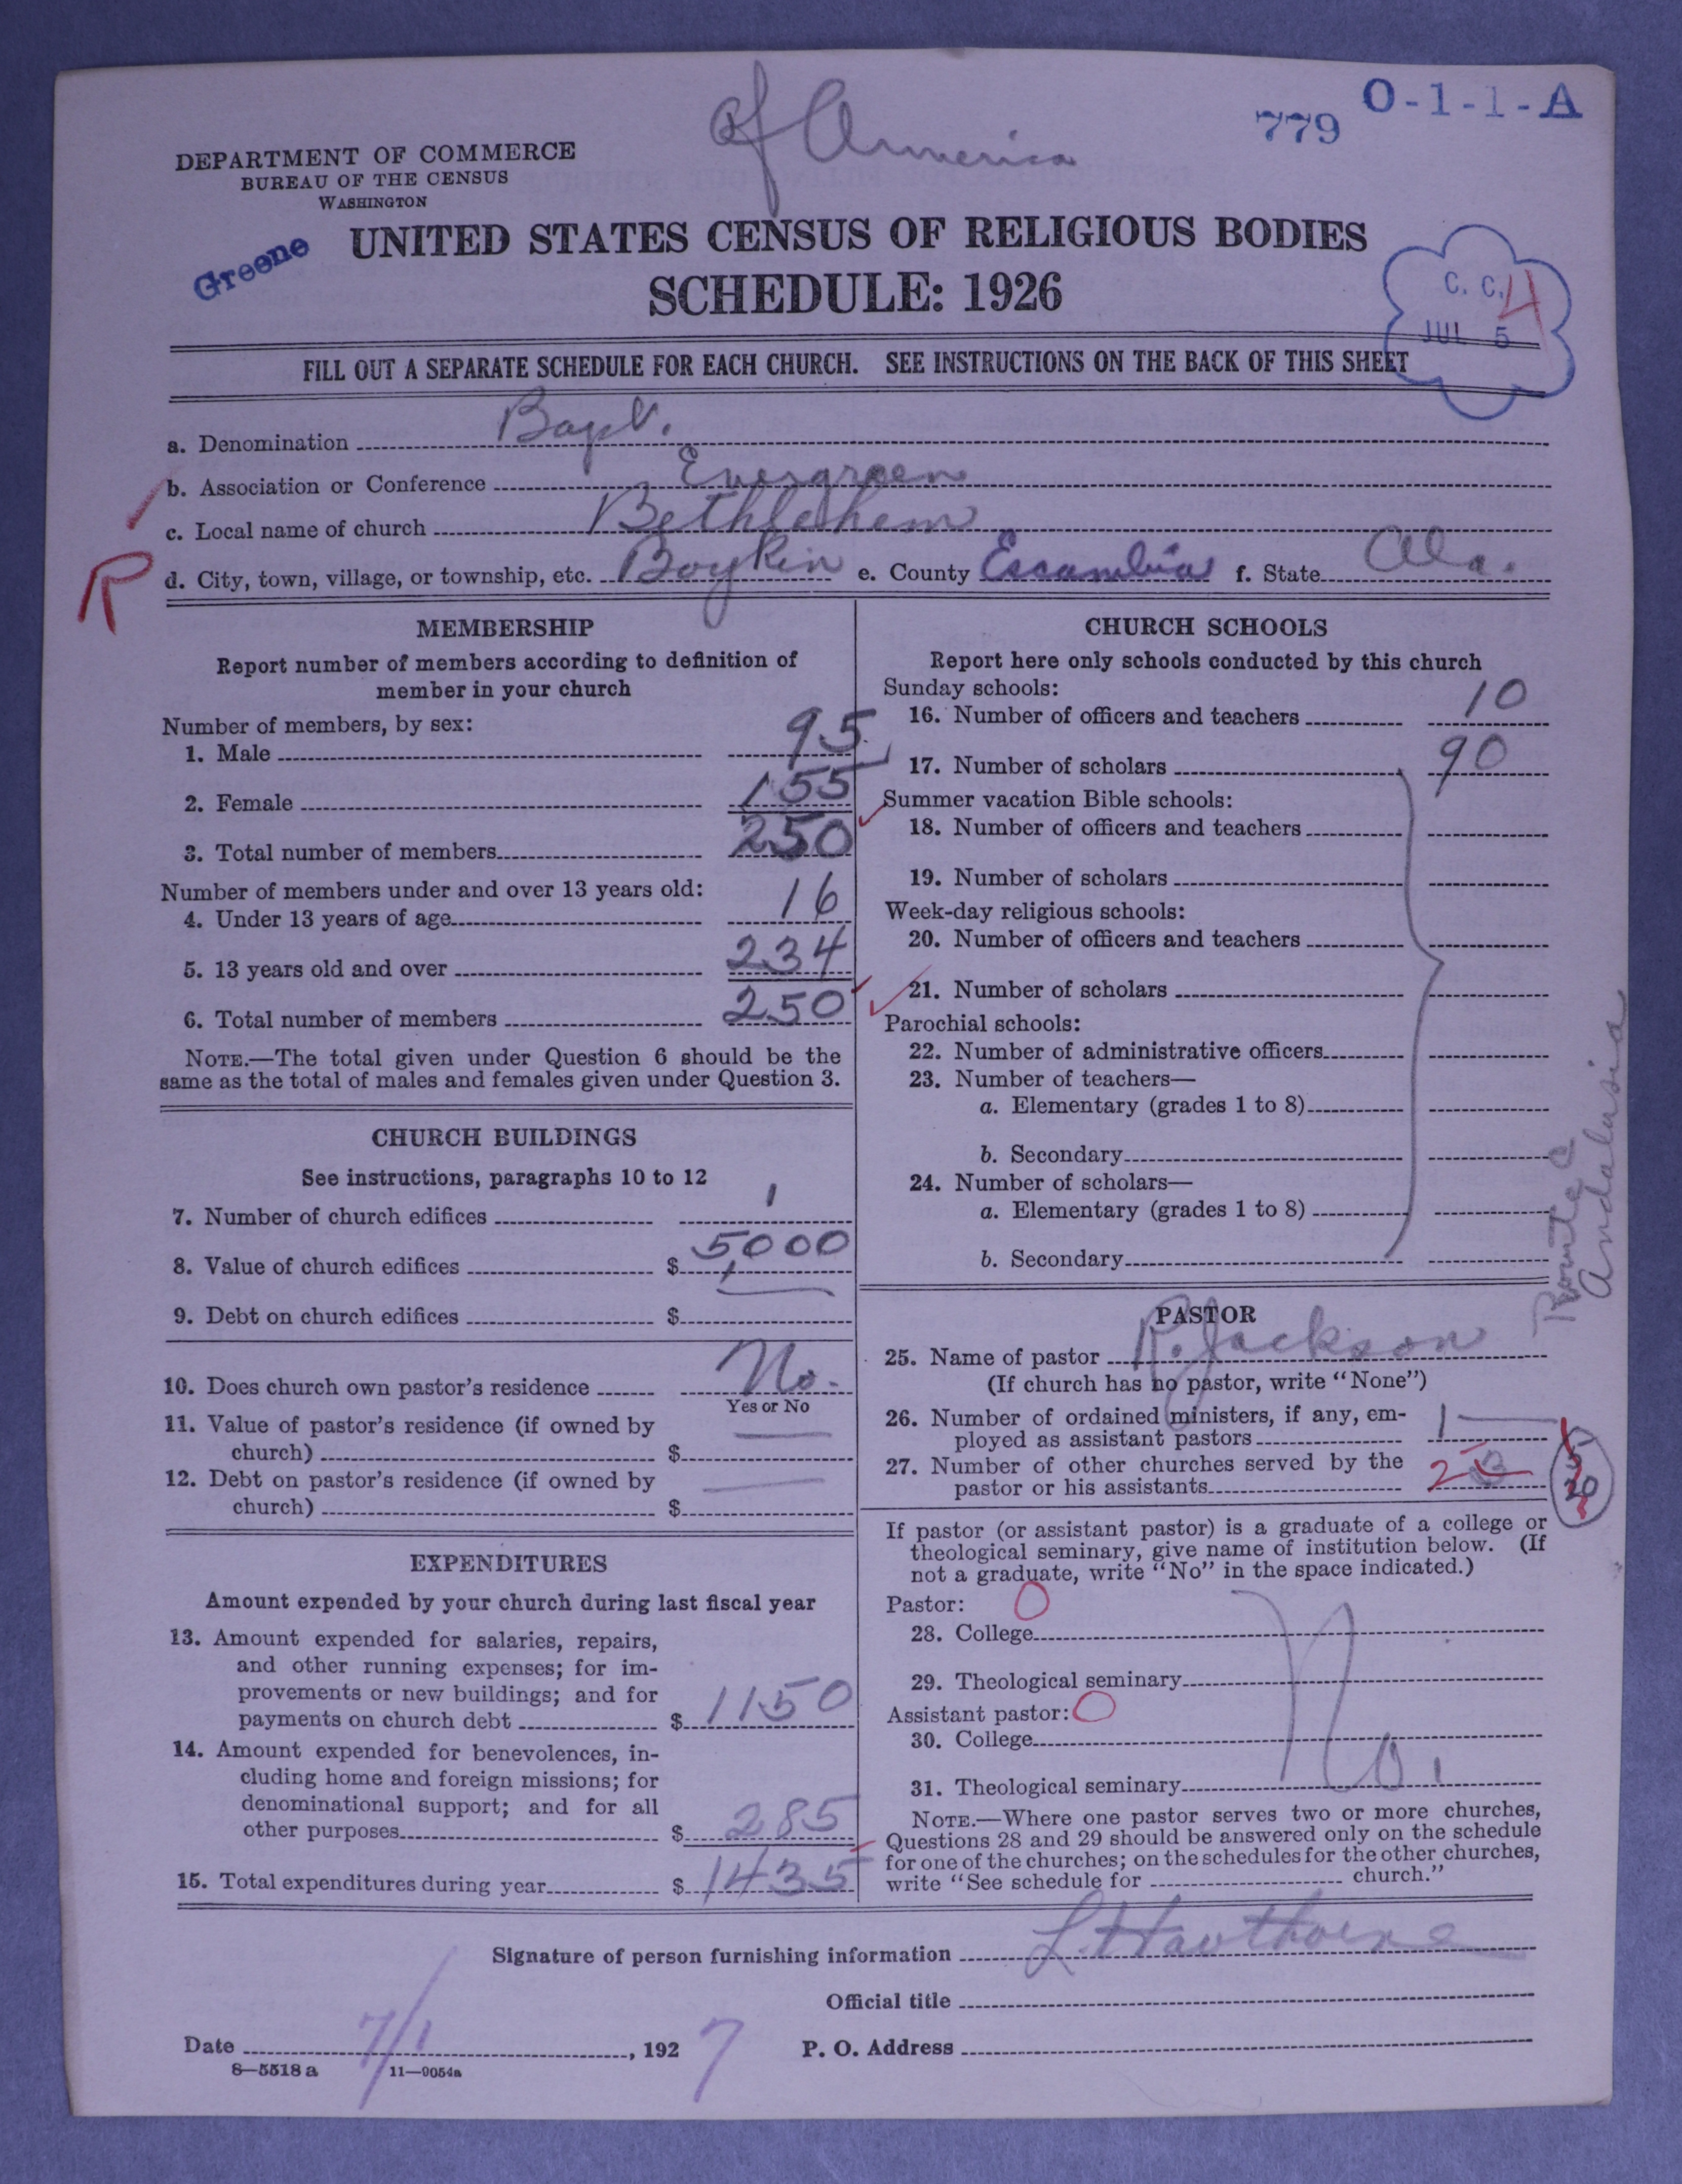 of America
779 O-1-1-A
DEPARTMENT OF COMMERCE
BUREAU OF THE CENSUS
WASHINGTON
Greene
UNITED STATES CENSUS OF RELIGIOUS BODIES
SCHEDULE: 1926
C. C. 4
JUL 5
FILL OUT A SEPARATE SCHEDULE FOR EACH CHURCH. SEE INSTRUCTIONS ON THE BACK OF THIS SHEET
a. Denomination Bapt.
b. Association or Conference Evergreen
c. Local name of church Bethlehem
R
d. City, town, village, or township, etc. Boykin e. County Escambia f. State Ala.
MEMBERSHIP
Report number of members according to definition of
member in your church
Number of members, by sex:
1. Male 95
2. Female 155
3. Total number of members 250
Number of members under and over 13 years old:
4. Under 13 years of age 16
5. 13 years old and over 234
6. Total number of members 250
NOTE.—The total given under Question 6 should be the
same as the total of males and females given under Question 3.
CHURCH BUILDINGS
See instructions, paragraphs 10 to 12
7. Number of church edifices 1
8. Value of church edifices $ 5000
9. Debt on church edifices $
10. Does church own pastor's residence No.
Yes or No
11. Value of pastor's residence (if owned by
church) $
12. Debt on pastor's residence (if owned by
church) $
EXPENDITURES
Amount expended by your church during last fiscal year
13. Amount expended for salaries, repairs,
and other running expenses; for im-
provements or new buildings; and for
payments on church debt $ 1150
14. Amount expended for benevolences, in-
cluding home and foreign missions; for
denominational support; and for all
other purposes $ 285
15. Total expenditures during year $ 1435
CHURCH SCHOOLS
Report here only schools conducted by this church
Sunday schools:
16. Number of officers and teachers 10
17. Number of scholars 90
Summer vacation Bible schools:
18. Number of officers and teachers
19. Number of scholars
Week-day religious schools:
20. Number of officers and teachers
21. Number of scholars
Parochial schools:
22. Number of administrative officers
23. Number of teachers—
a. Elementary (grades 1 to 8)
b. Secondary
24. Number of scholars—
a. Elementary (grades 1 to 8)
b. Secondary
Route C
Andalusia
PASTOR
25. Name of pastor R. Jackson
(If church has no pastor, write "None")
26. Number of ordained ministers, if any, em-
ployed as assistant pastors 1
27. Number of other churches served by the
pastor or his assistants 2 3
If pastor (or assistant pastor) is a graduate of a college or
theological seminary, give name of institution below. (If
not a graduate, write "No" in the space indicated.)
Pastor: O
28. College
29. Theological seminary
Assistant pastor: O
30. College
No.
31. Theological seminary
NOTE.—Where one pastor serves two or more churches,
Questions 28 and 29 should be answered only on the schedule
for one of the churches; on the schedules for the other churches,
write "See schedule for church."
Signature of person furnishing information L. Hawthorne
Official title
Date 7/1, 1927 P. O. Address
8—5518 a 11—9054a